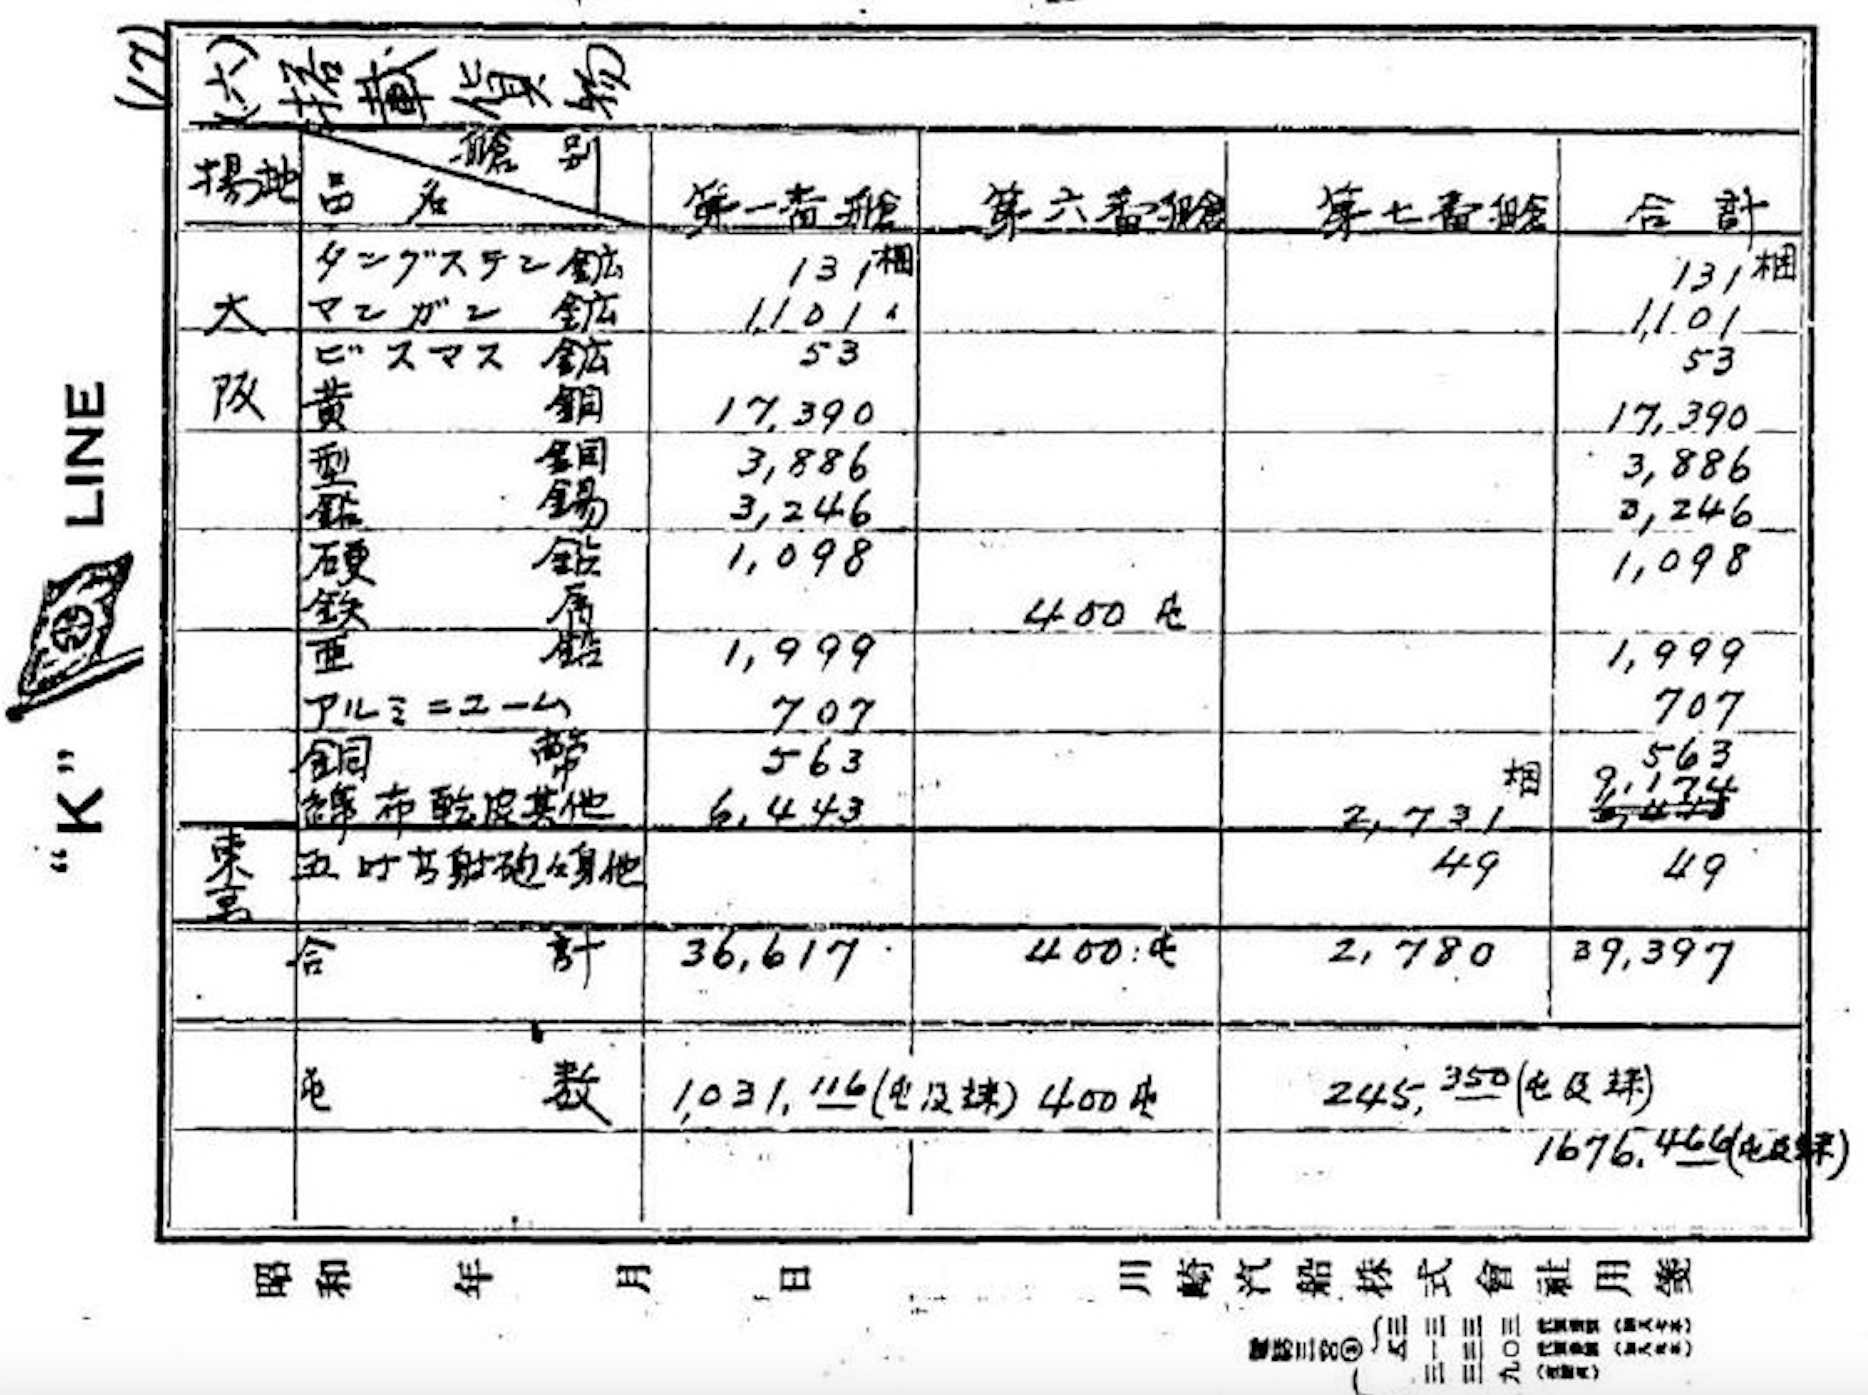 (17)
(六) 搭載貨物
揚地 品名 艙別 第一番艙 第六番艙 第七番艙 合計
大阪
タングステン鉱 131梱 131梱
マンガン鉱 1,101 1,101
ビスマス鉱 53 53
黄銅 17,390 17,390
型銅 3,886 3,886
鉛錫 3,246 3,246
硬鉛 1,098 1,098
鉄屑 400屯
亜鉛 1,999 1,999
アルミニユーム 707 707
銅幣 563 563
綿布乾皮其他 6,443 2,731梱 9,174
東京 五吋高射砲 他 49 49
合計 36,617 400屯 2,780 39,397
屯数 1,031.116(屯及 ) 400屯 245.350(屯及 )
1676.466(屯及 )
"K" LINE
昭和 年 月 日
川崎汽船株式會社用箋